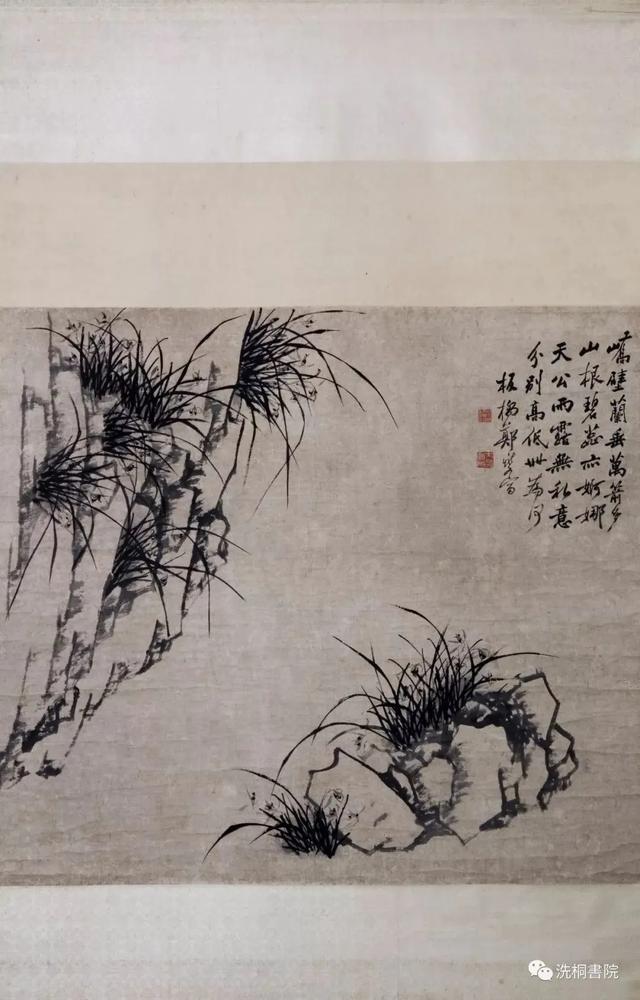 峭壁蘭垂萬箭多
山根碧蕊亦婀娜
天公雨露無私意
分別高低世為何
板橋鄭燮寫
洗桐書院